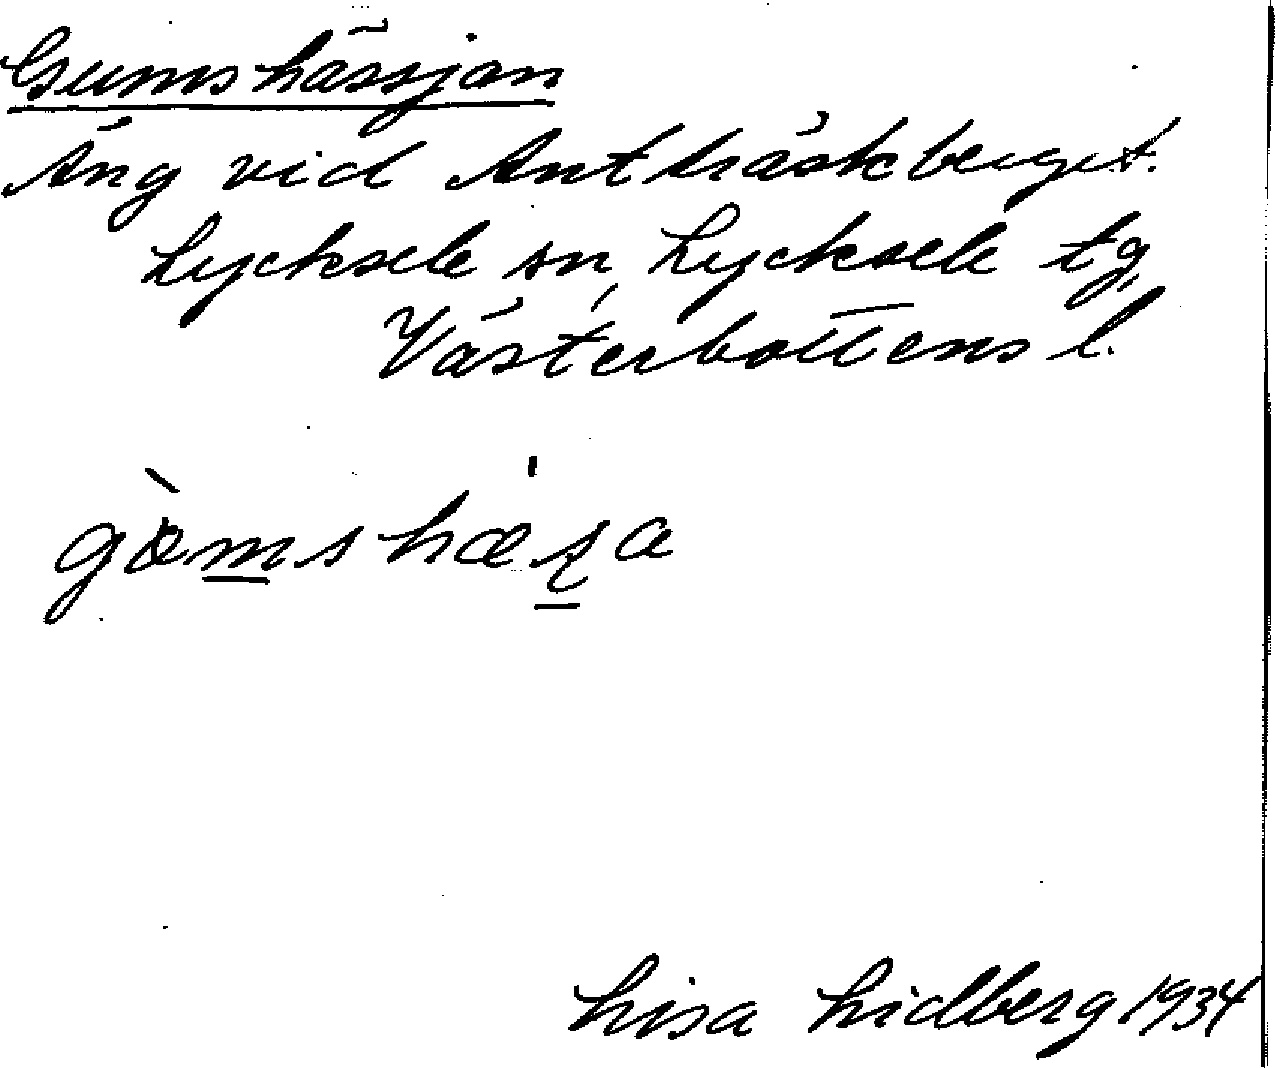 Gumshässjan
Äng vid Antträskberget.
Lycksele sn, Lycksele tg,
Västerbottens l.
Lisa Lidberg 1934